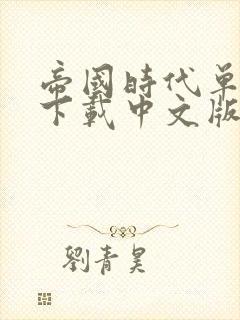 帝國時代单
下載中文版
劉青昊